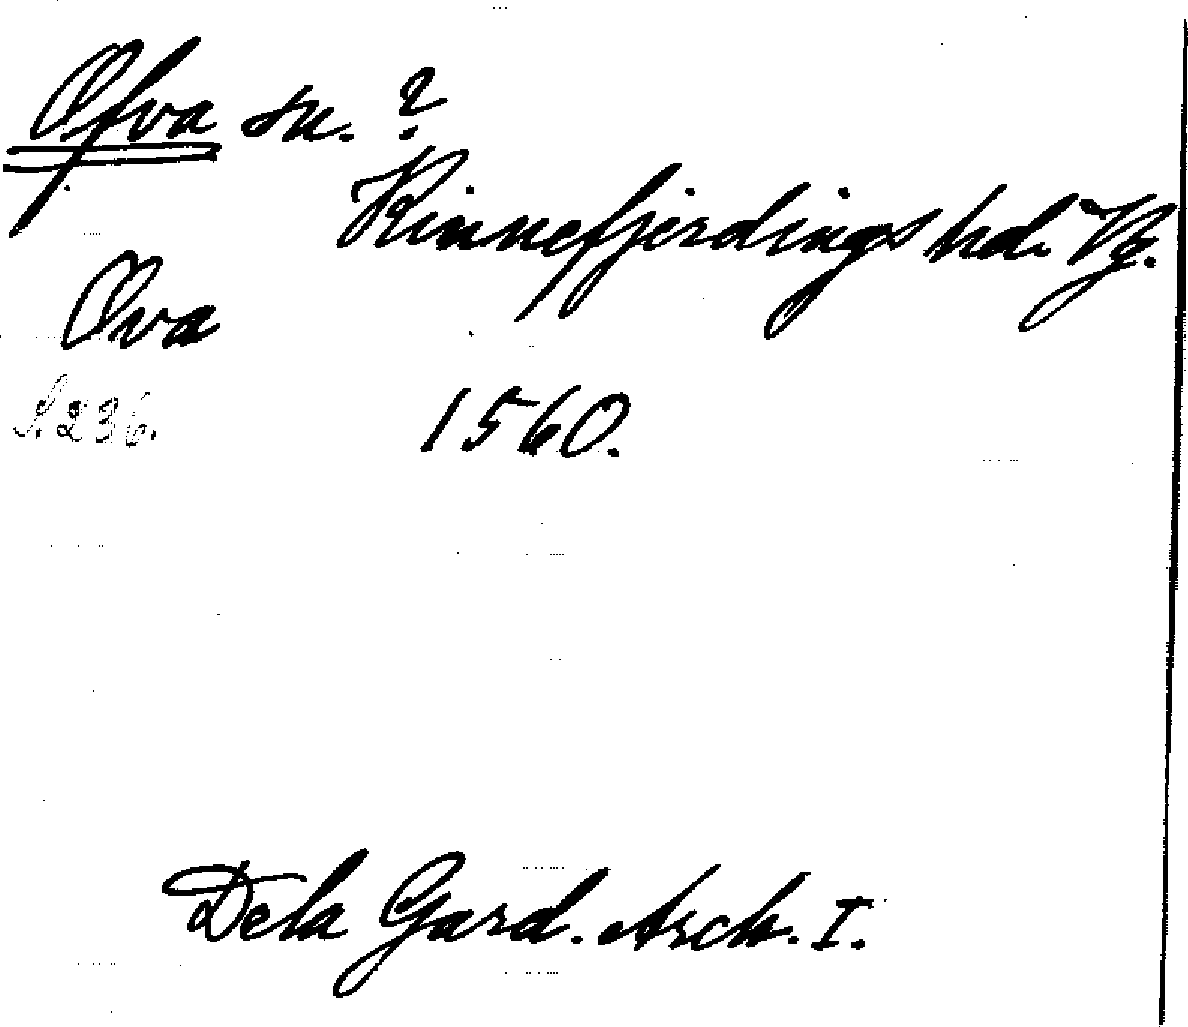 Ofva sn. ?
Kinnefjerdings hd. Vg.
Ova
S. 236.
1560.
Dela Gard. Arch. I.